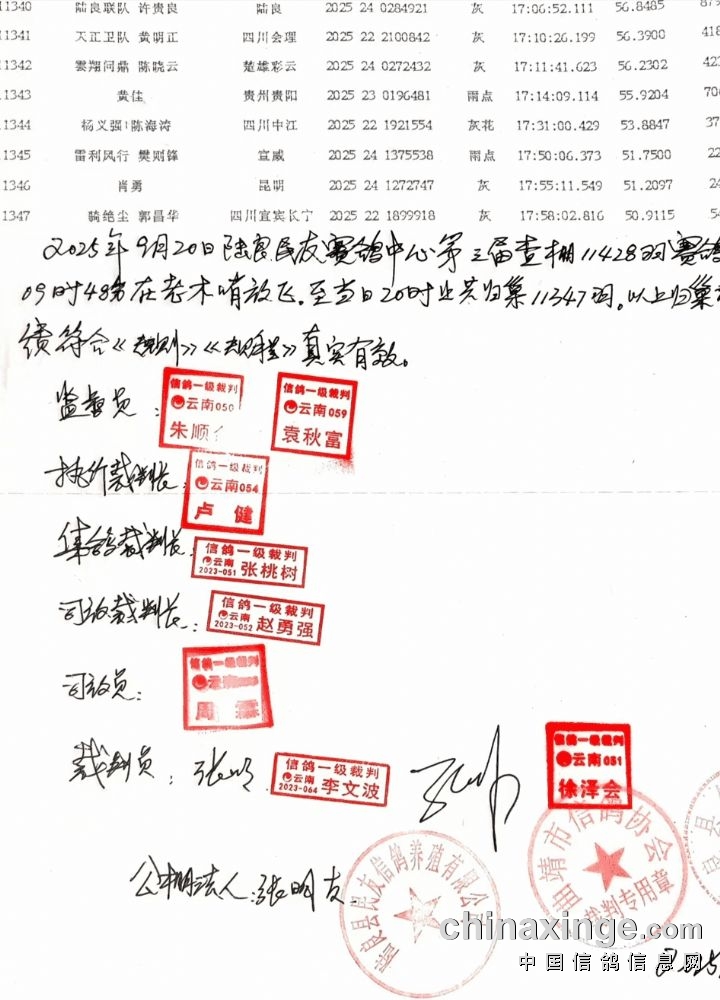 11340 陆良联队 许贵良 陆良 2025 24 0284921 灰 17:06:52.111 56.8485 879
11341 天正卫队 黄明正 四川会理 2025 22 2100842 灰 17:10:26.199 56.3900 418
11342 雲翔问鼎 陈晓云 楚雄彩云 2025 24 0272432 灰 17:11:41.623 56.2302 423
11343 黄佳 贵州贵阳 2025 23 0196481 雨点 17:14:09.114 55.9204 70
11344 杨义强+陈海涛 四川中江 2025 22 1921554 灰花 17:31:00.429 53.8847 37
11345 雷利风行 樊则锋 宣威 2025 24 1375538 雨点 17:50:06.373 51.7500 22
11346 肖勇 昆明 2025 24 1272747 灰 17:55:11.549 51.2097 24
11347 骑绝尘 郭昌华 四川宜宾长宁 2025 22 1899918 灰 17:58:02.816 50.9115 54
2025年9月20日陆良民友赛鸽中心第三届查棚11428羽赛鸽
09时48分在老木哨放飞。至当日20时止共归巢11347羽。以上归巢
绩符合《规则》《规程》真实有效。
监督员：
信鸽一级裁判
云南050
朱顺
信鸽一级裁判
云南059
袁秋富
执行裁判长：
信鸽一级裁判
云南054
卢健
集鸽裁判长：
信鸽一级裁判
云南
2023-051 张桃树
司放裁判长：
信鸽一级裁判
云南
2023-052 赵勇强
司放员：
信鸽一级裁判
云南
周霖
裁判员：张
信鸽一级裁判
云南
2023-064 李文波
信鸽一级裁判
云南051
徐泽会
公棚法人：张明友
陆良县民友信鸽养殖有限公司
曲靖市信鸽协会
裁判专用章
良县
chinaxinge.com
中国信鸽信息网
2025